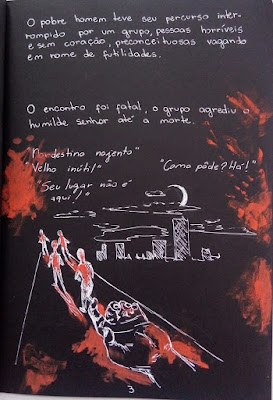 O pobre homem teve seu percurso inter-
rompido por um grupo, pessoas horríveis
e sem coração, preconceituosas vagando
em nome de futilidades.
O encontro foi fatal, o grupo agrediu o
humilde senhor até a morte.
Nordestino nojento"
Velho inútil"
"Como pôde? Há!"
"Seu lugar não é
aqui!"
3